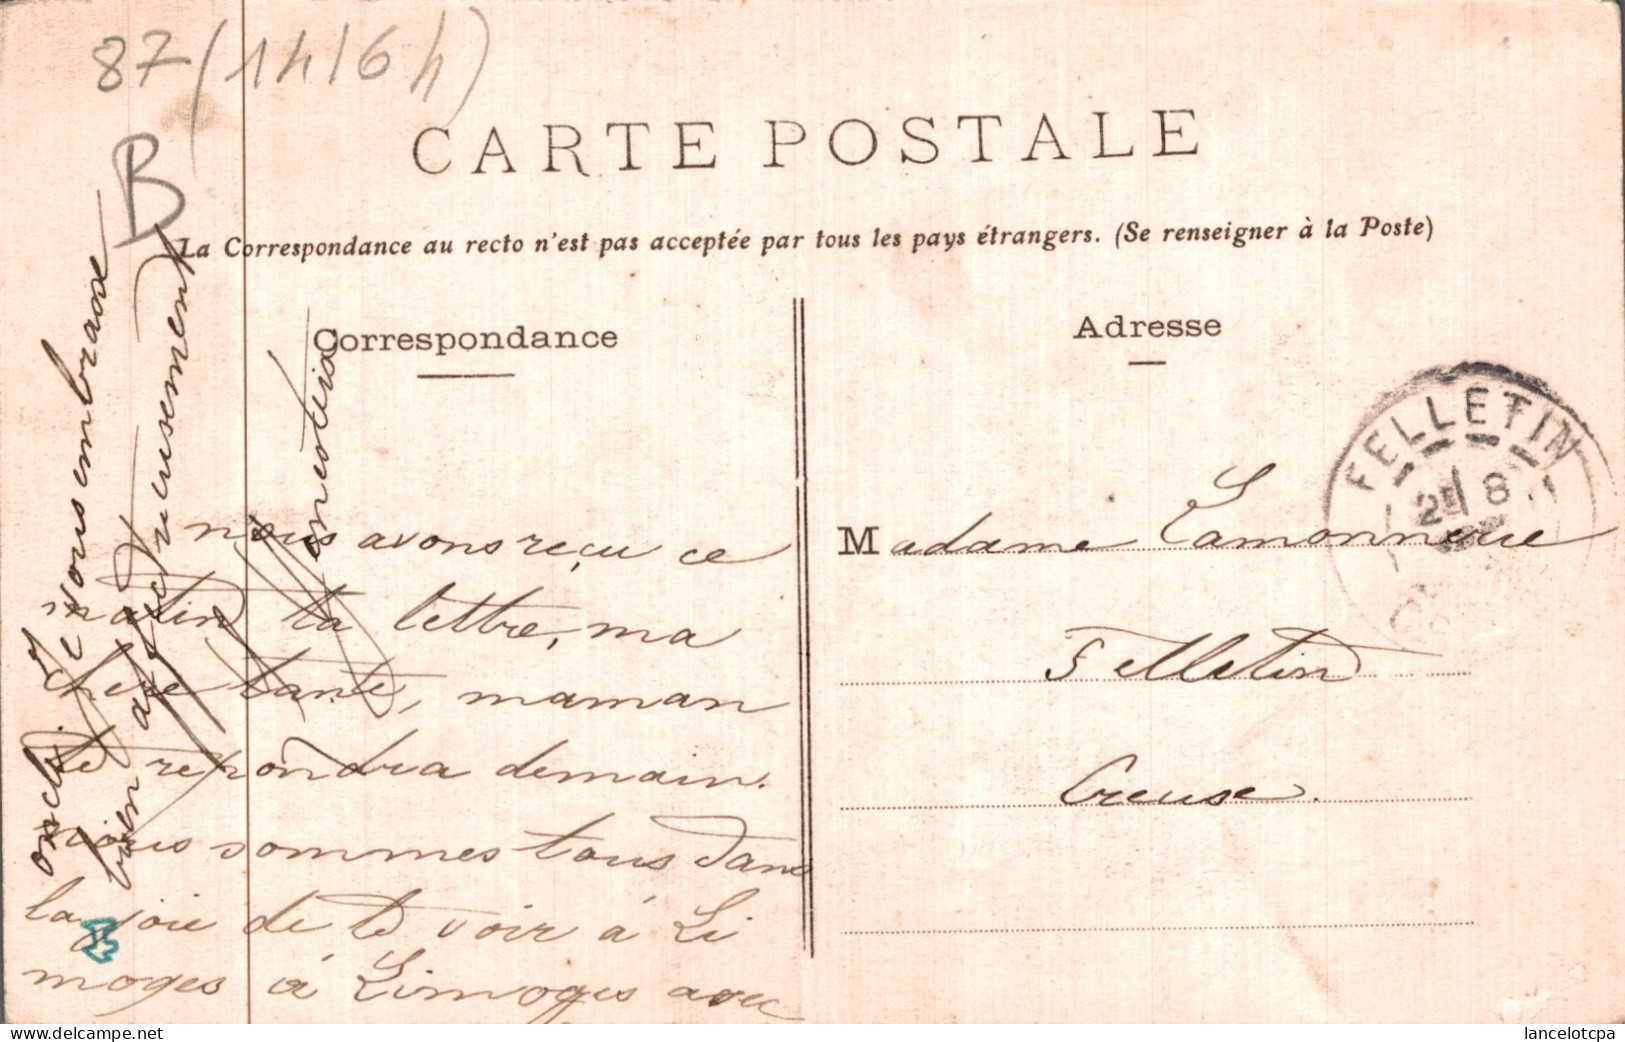 87 (1416h)
B
CARTE POSTALE
La Correspondance au recto n'est pas acceptée par tous les pays étrangers. (Se renseigner à la Poste)
Correspondance
Adresse
FELLETIN
21 8
nous avons reçu ce
matin ta lettre, ma
chere tante, maman
te repondra demain.
nous sommes tous dans
la joie de te voir à Li
moges à Limoges avec
oncle
Je vous embrasse
bien affectueusement
Madame Lamonnerie
Felletin
Creuse.
Delcampe.net
lancelotcpa